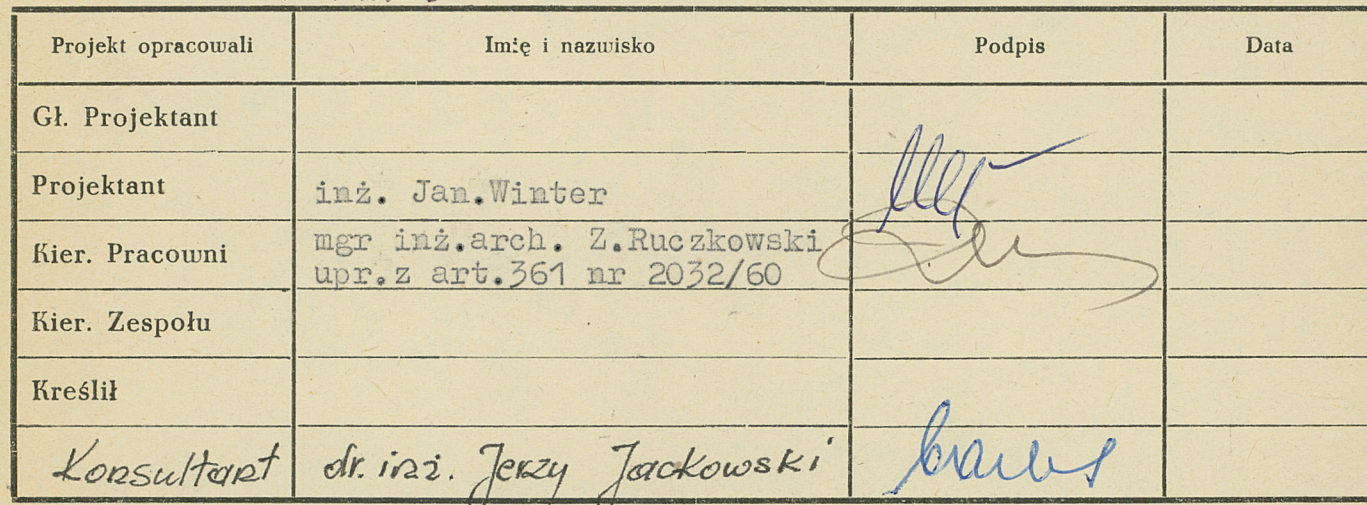 Projekt opracowali Imię i nazwisko Podpis Data
Gł. Projektant
Projektant inż. Jan.Winter
Kier. Pracowni mgr inż.arch. Z.Ruczkowski
upr.z art.361 nr 2032/60
Kier. Zespołu
Kreślił
Konsultant dr. inż. Jerzy Jackowski